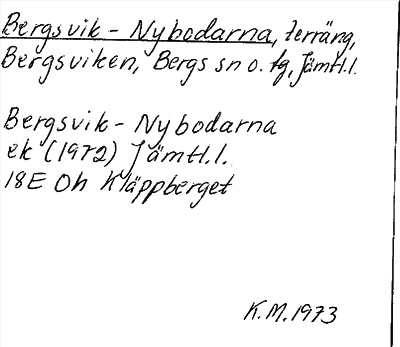 Bergsvik - Nybodarna, terräng,
Bergsviken, Bergs sn o. tg, Jämtl.l.
Bergsvik - Nybodarna
ek (1972) Jämtl.l.
18E Oh Kläppberget
K.M. 1973